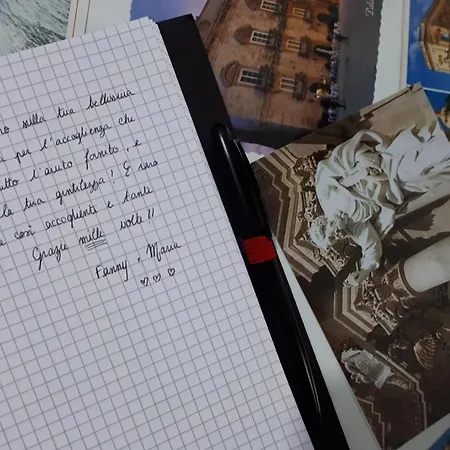 sulla tua bellissima
per l'accoglienza che
l'aiuto fornito, e
la tua gentilezza! È raro
così accoglienti e tante
Grazie mille volte!!
Fanny + Maria